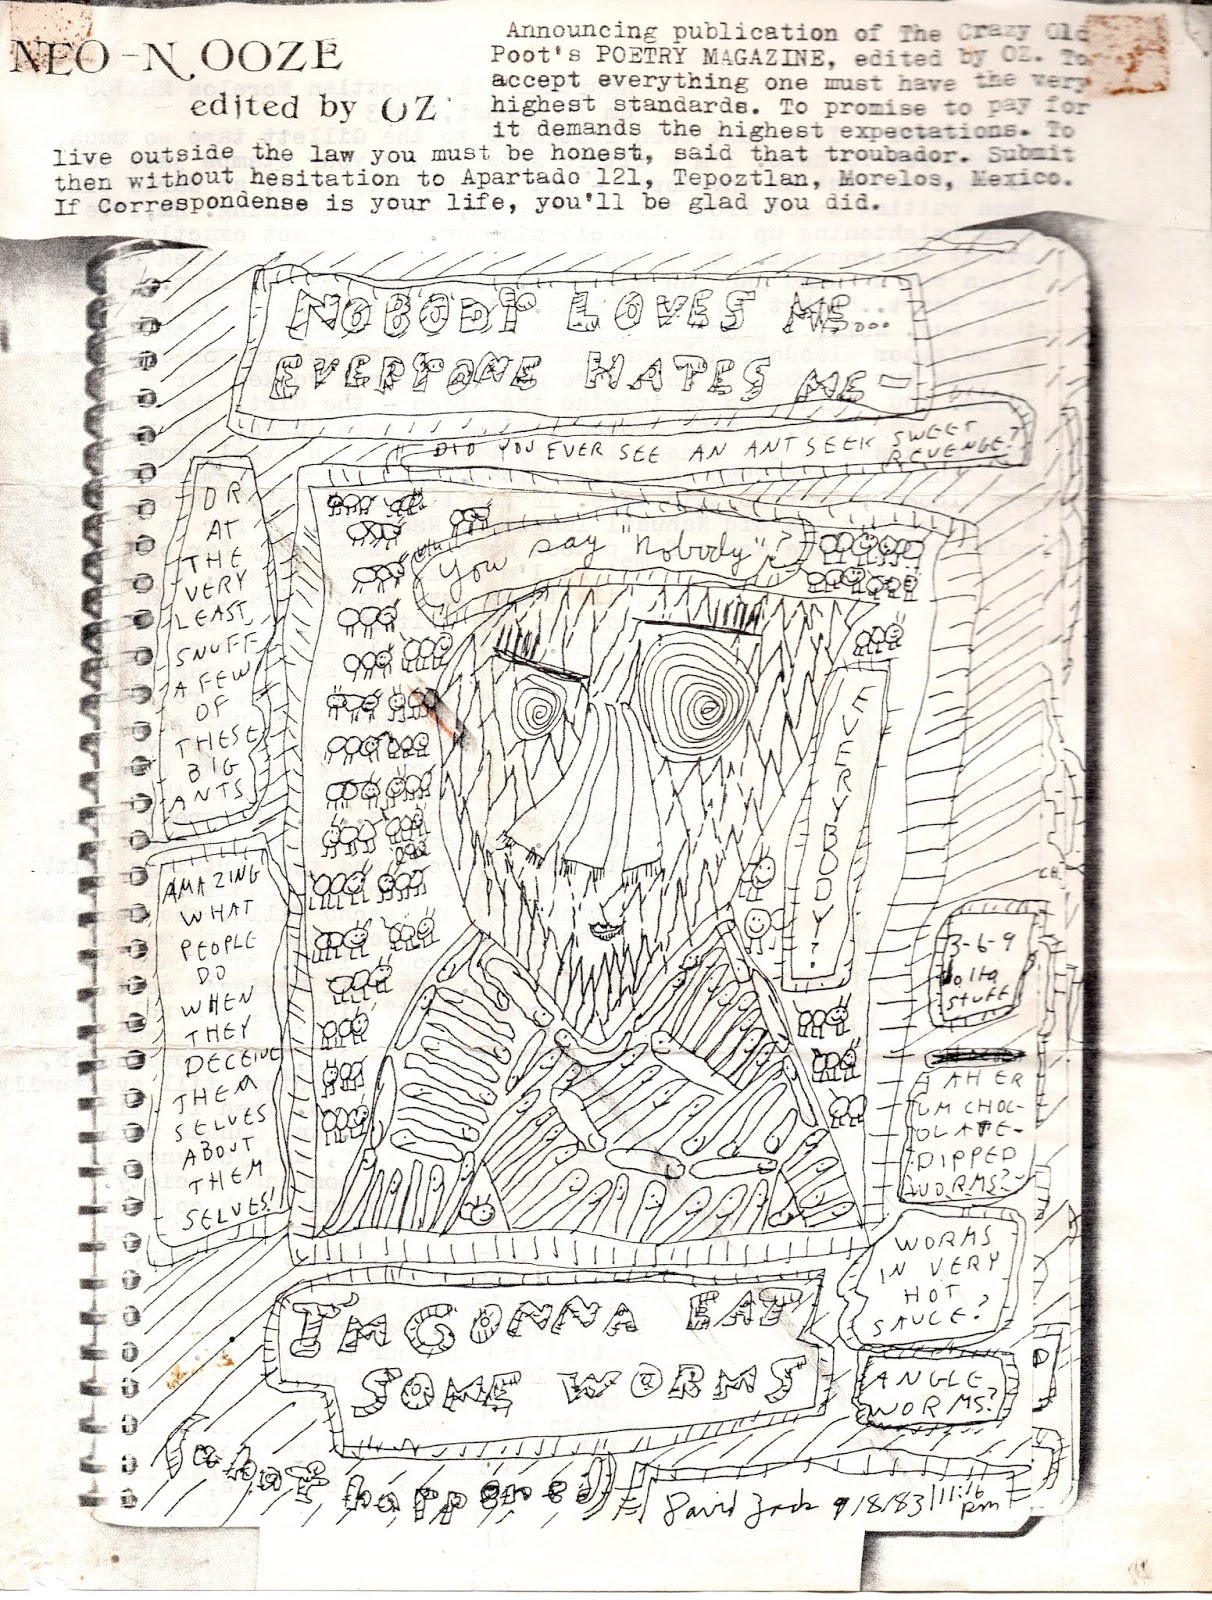 NEO-N OOZE
edited by OZ
Announcing publication of The Crazy Old
Poot's POETRY MAGAZINE, edited by OZ. To
accept everything one must have the very
highest standards. To promise to pay for
it demands the highest expectations. To
live outside the law you must be honest, said that troubador. Submit
then without hesitation to Apartado 121, Tepoztlan, Morelos, Mexico.
If Correspondense is your life, you'll be glad you did.
NOBODY LOVES ME...
EVERYONE HATES ME-
DID YOU EVER SEE AN ANT SEEK SWEET
REVENGE?
OR
AT
THE
VERY
LEAST
SNUFF
A FEW
OF
THESE
BIG
ANTS
You say "nobody"?
EVERYBODY?
AMAZING
WHAT
PEOPLE
DO
WHEN
THEY
DECEIVE
THEM
SELVES
ABOUT
THEM
SELVES!
3-6-9
stuff
UM CHOC-
OLATE-
DIPPED
WORMS?
WORMS
IN VERY
HOT
SAUCE?
ANGLE
WORMS?
I'M GONNA EAT
SOME WORMS
(what happened)
David Zack 9/8/83 11:16
pm